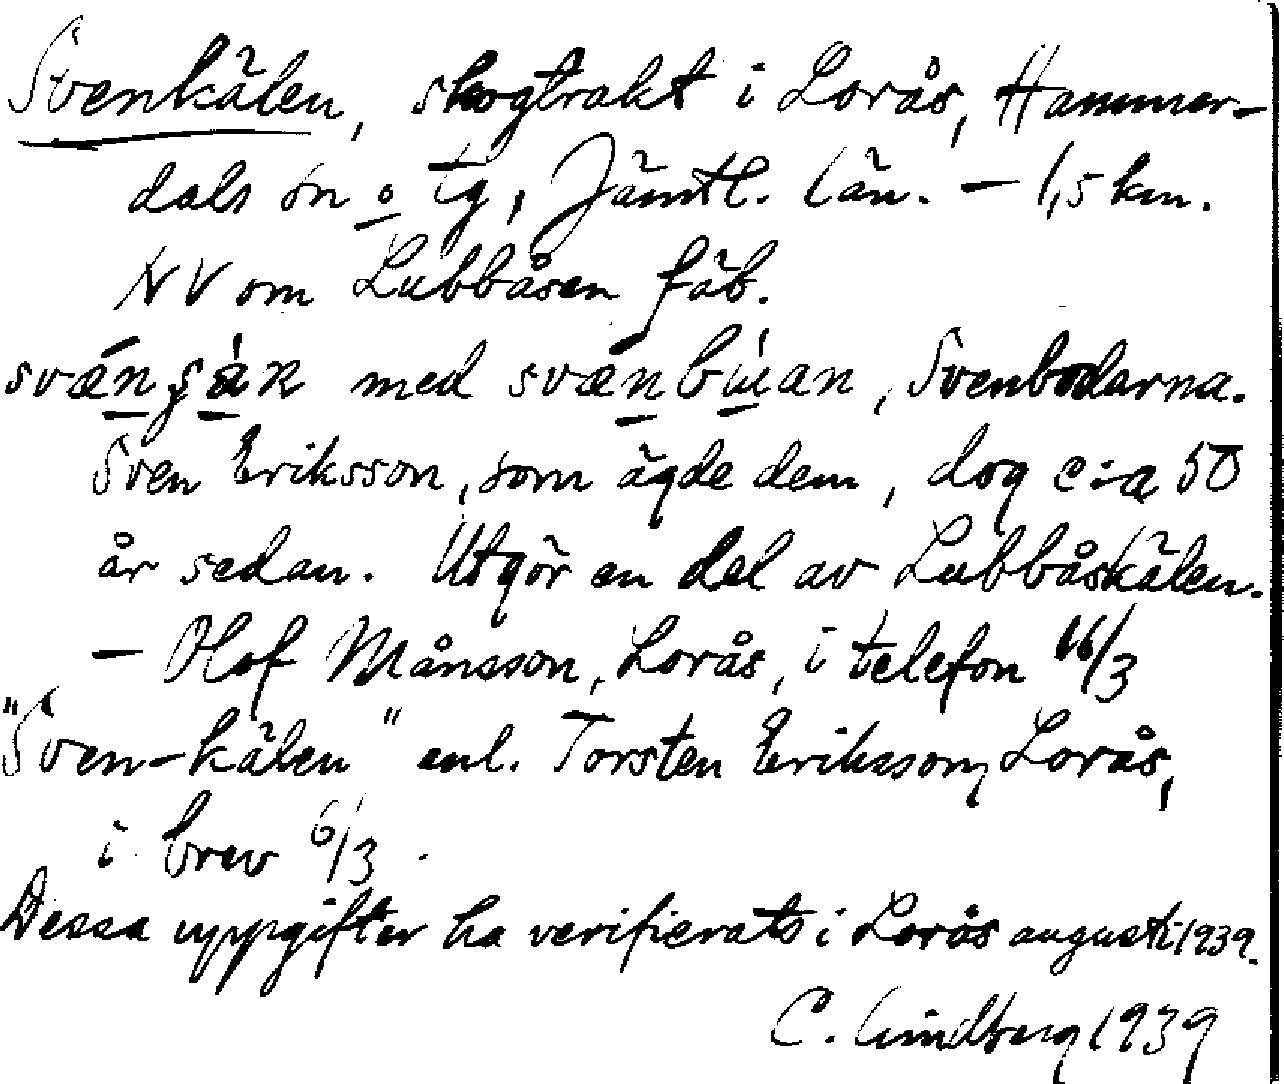 Svenkälen, skogtrakt i Lorås, Hammer-
dals sn o tg, Jämtl. län. – 1,5 km.
NV om Lubbåsen fäb.
med Svenbodarna.
Sven Eriksson, som ägde dem, dog c:a 50
år sedan. Utgör en del av Lubbåskälen.
– Olof Månsson, Lorås, i telefon 16/3
"Sven-kälen" enl. Torsten Eriksson, Lorås,
i brev 6/3.
Dessa uppgifter ha verifierats i Lorås augusti 1939.
C. Lindberg 1939